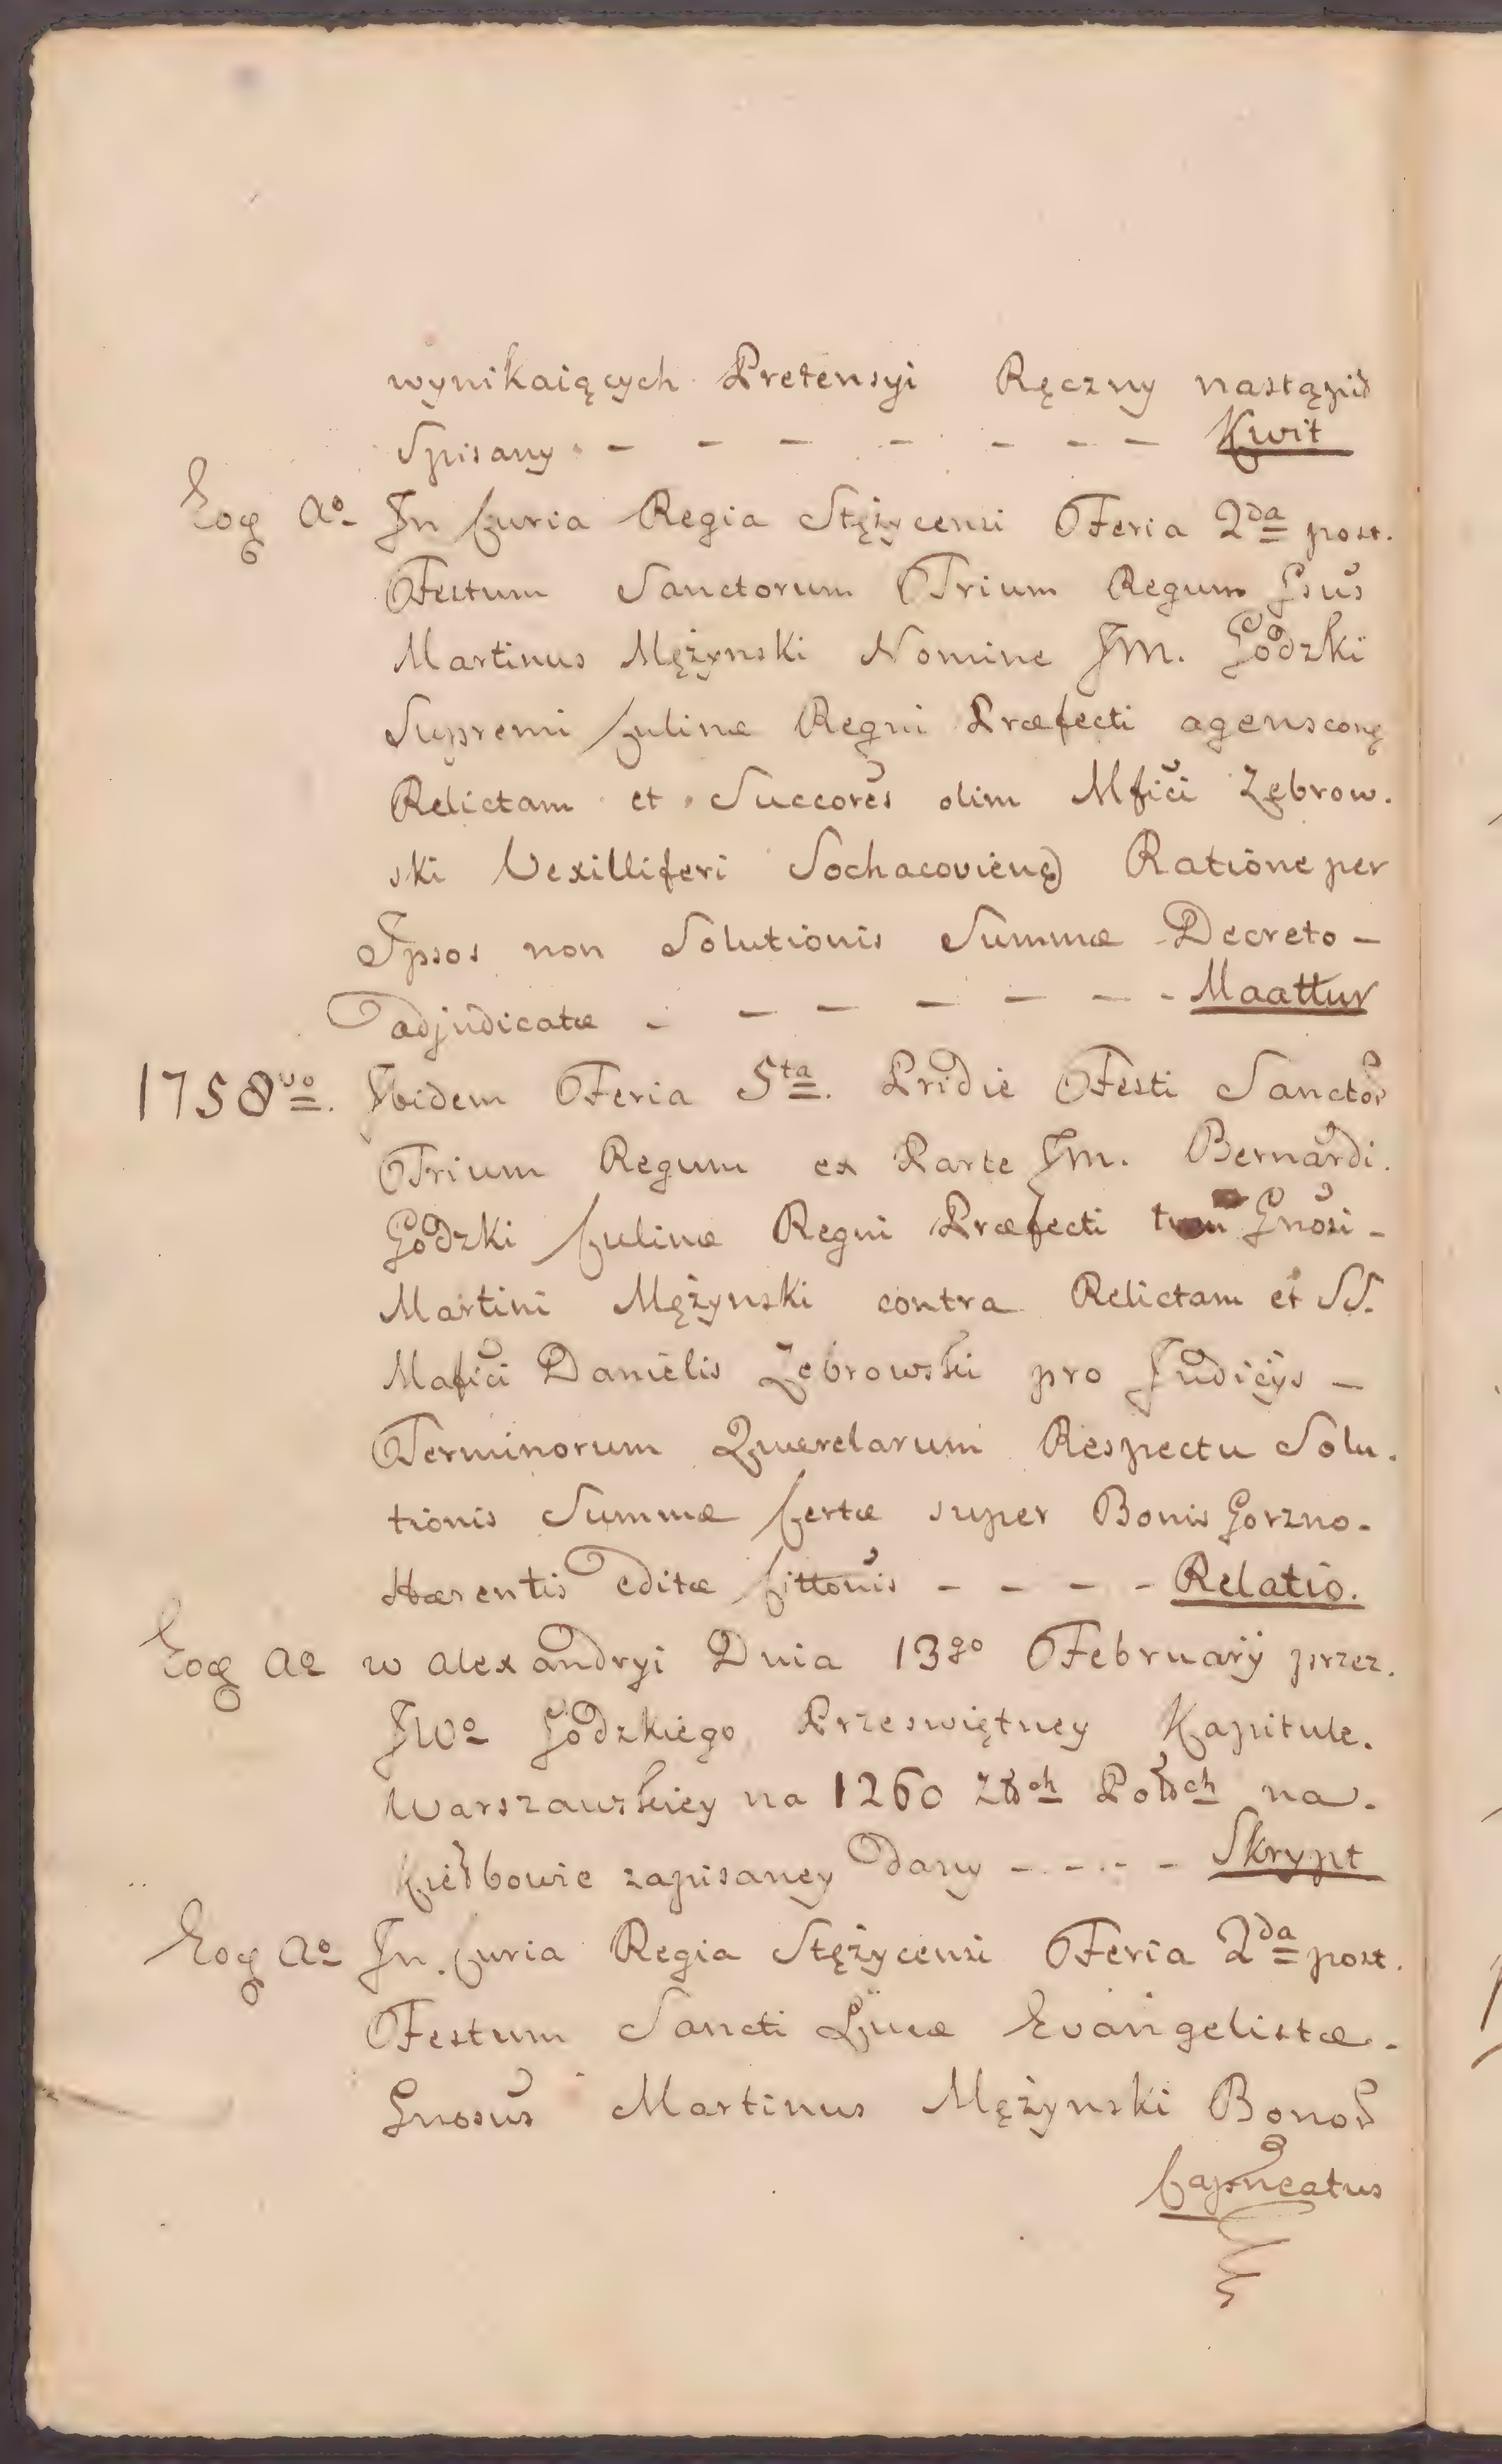 wynikaiących Pretensyi Ręczny nastąpił
Spisany - - - - - - - Kwit
Eoq Ao In Curia Regia Stężycensi Feria 2da post.
Festum Sanctorum Trium Regum Gsus
Martinus Mężynski Nomine JM. Godzki
Supremi Culinæ Regni Præfecti agens conq
Relictam et Succores olim Mfici Zebrow.
ski Vexilliferi Sochacoviens Ratione per
Ipsos non Solutionis Summæ Decreto -
adjudicatæ - - - - - - - Maattur
1758vo. Ibidem Feria 5ta. Pridie Festi Sanctor
Trium Regum ex Parte JM. Bernardi.
Godzki Culinæ Regni Præfecti Gnosi -
Martini Mężynski contra Relictam et SS.
Mafici Danielis Zebrowski pro Judicÿs -
Terminorum Querelarum Respectu Solu.
tionis Summæ Certæ super Bonis Gorzno.
Hærentis Editæ Cittonis - - - - Relatio.
Eoq Ao w Alexandryi Dnia 13go Februarÿ przez.
JWo Godzkiego Przeswiętney Kapitule.
Warszawskiey na 1260 Złch Polch na.
Kiełbowie zapisaney dany - - - - Skrypt
Eoq Ao In Curia Regia Stężycensi Feria 2da post.
Festum Sancti Lucæ Evangelistæ.
Gnosus Martinus Mężynski Bonor
Capneatus